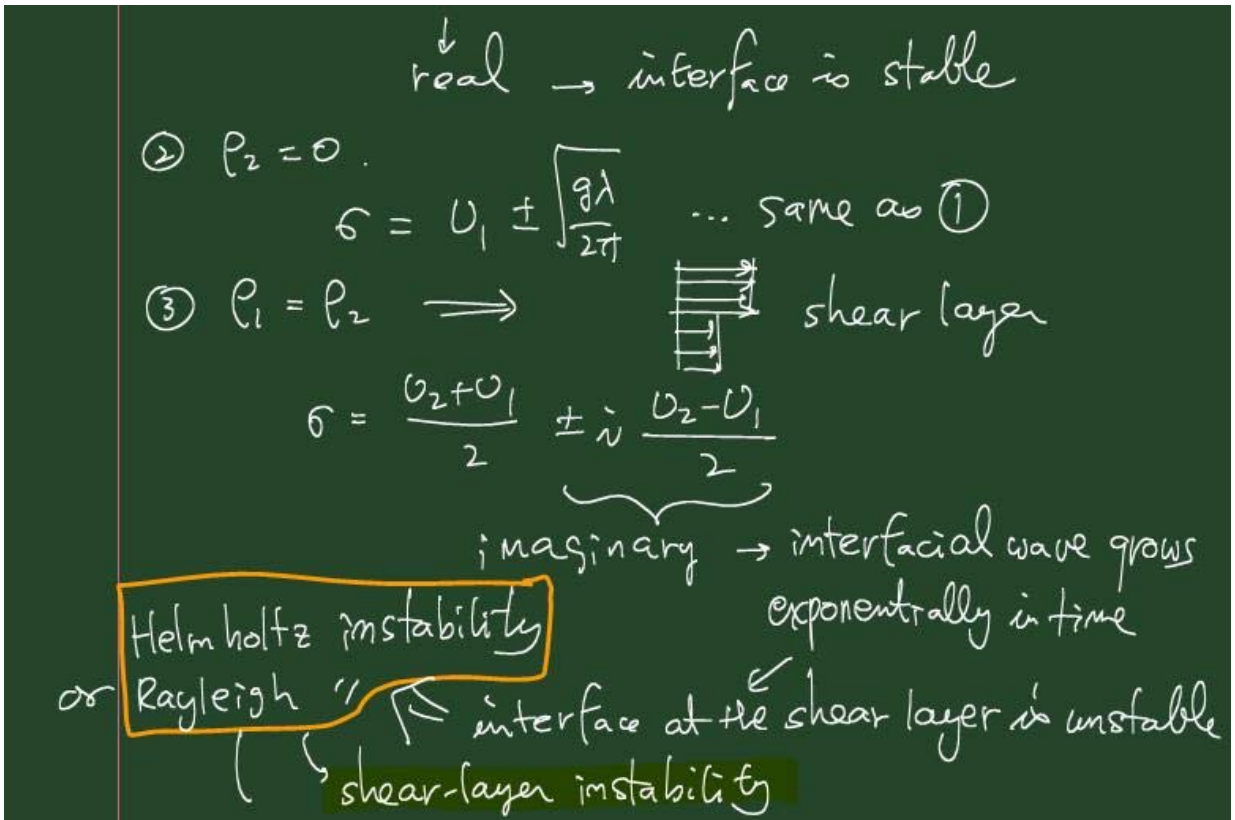 ↓
real → interface is stable
② ρ₂ = 0.
σ = U₁ ± √(gλ/2π) ... same as ①
③ ρ₁ = ρ₂ ⟹ shear layer
σ = (U₂+U₁)/2 ± i (U₂-U₁)/2
imaginary → interfacial wave grows
exponentrally in time
Helmholtz instability
or Rayleigh "
interface at the shear layer is unstable
shear-layer instability